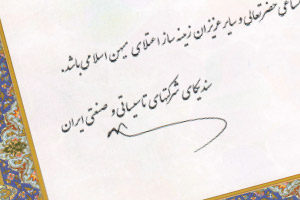 ساعی حضرتعالی و سایر عزیزان زمینه ساز اعتلای میهن اسلامی باشد.
سندیکای شرکتهای تاسیساتی و صنعتی ایران